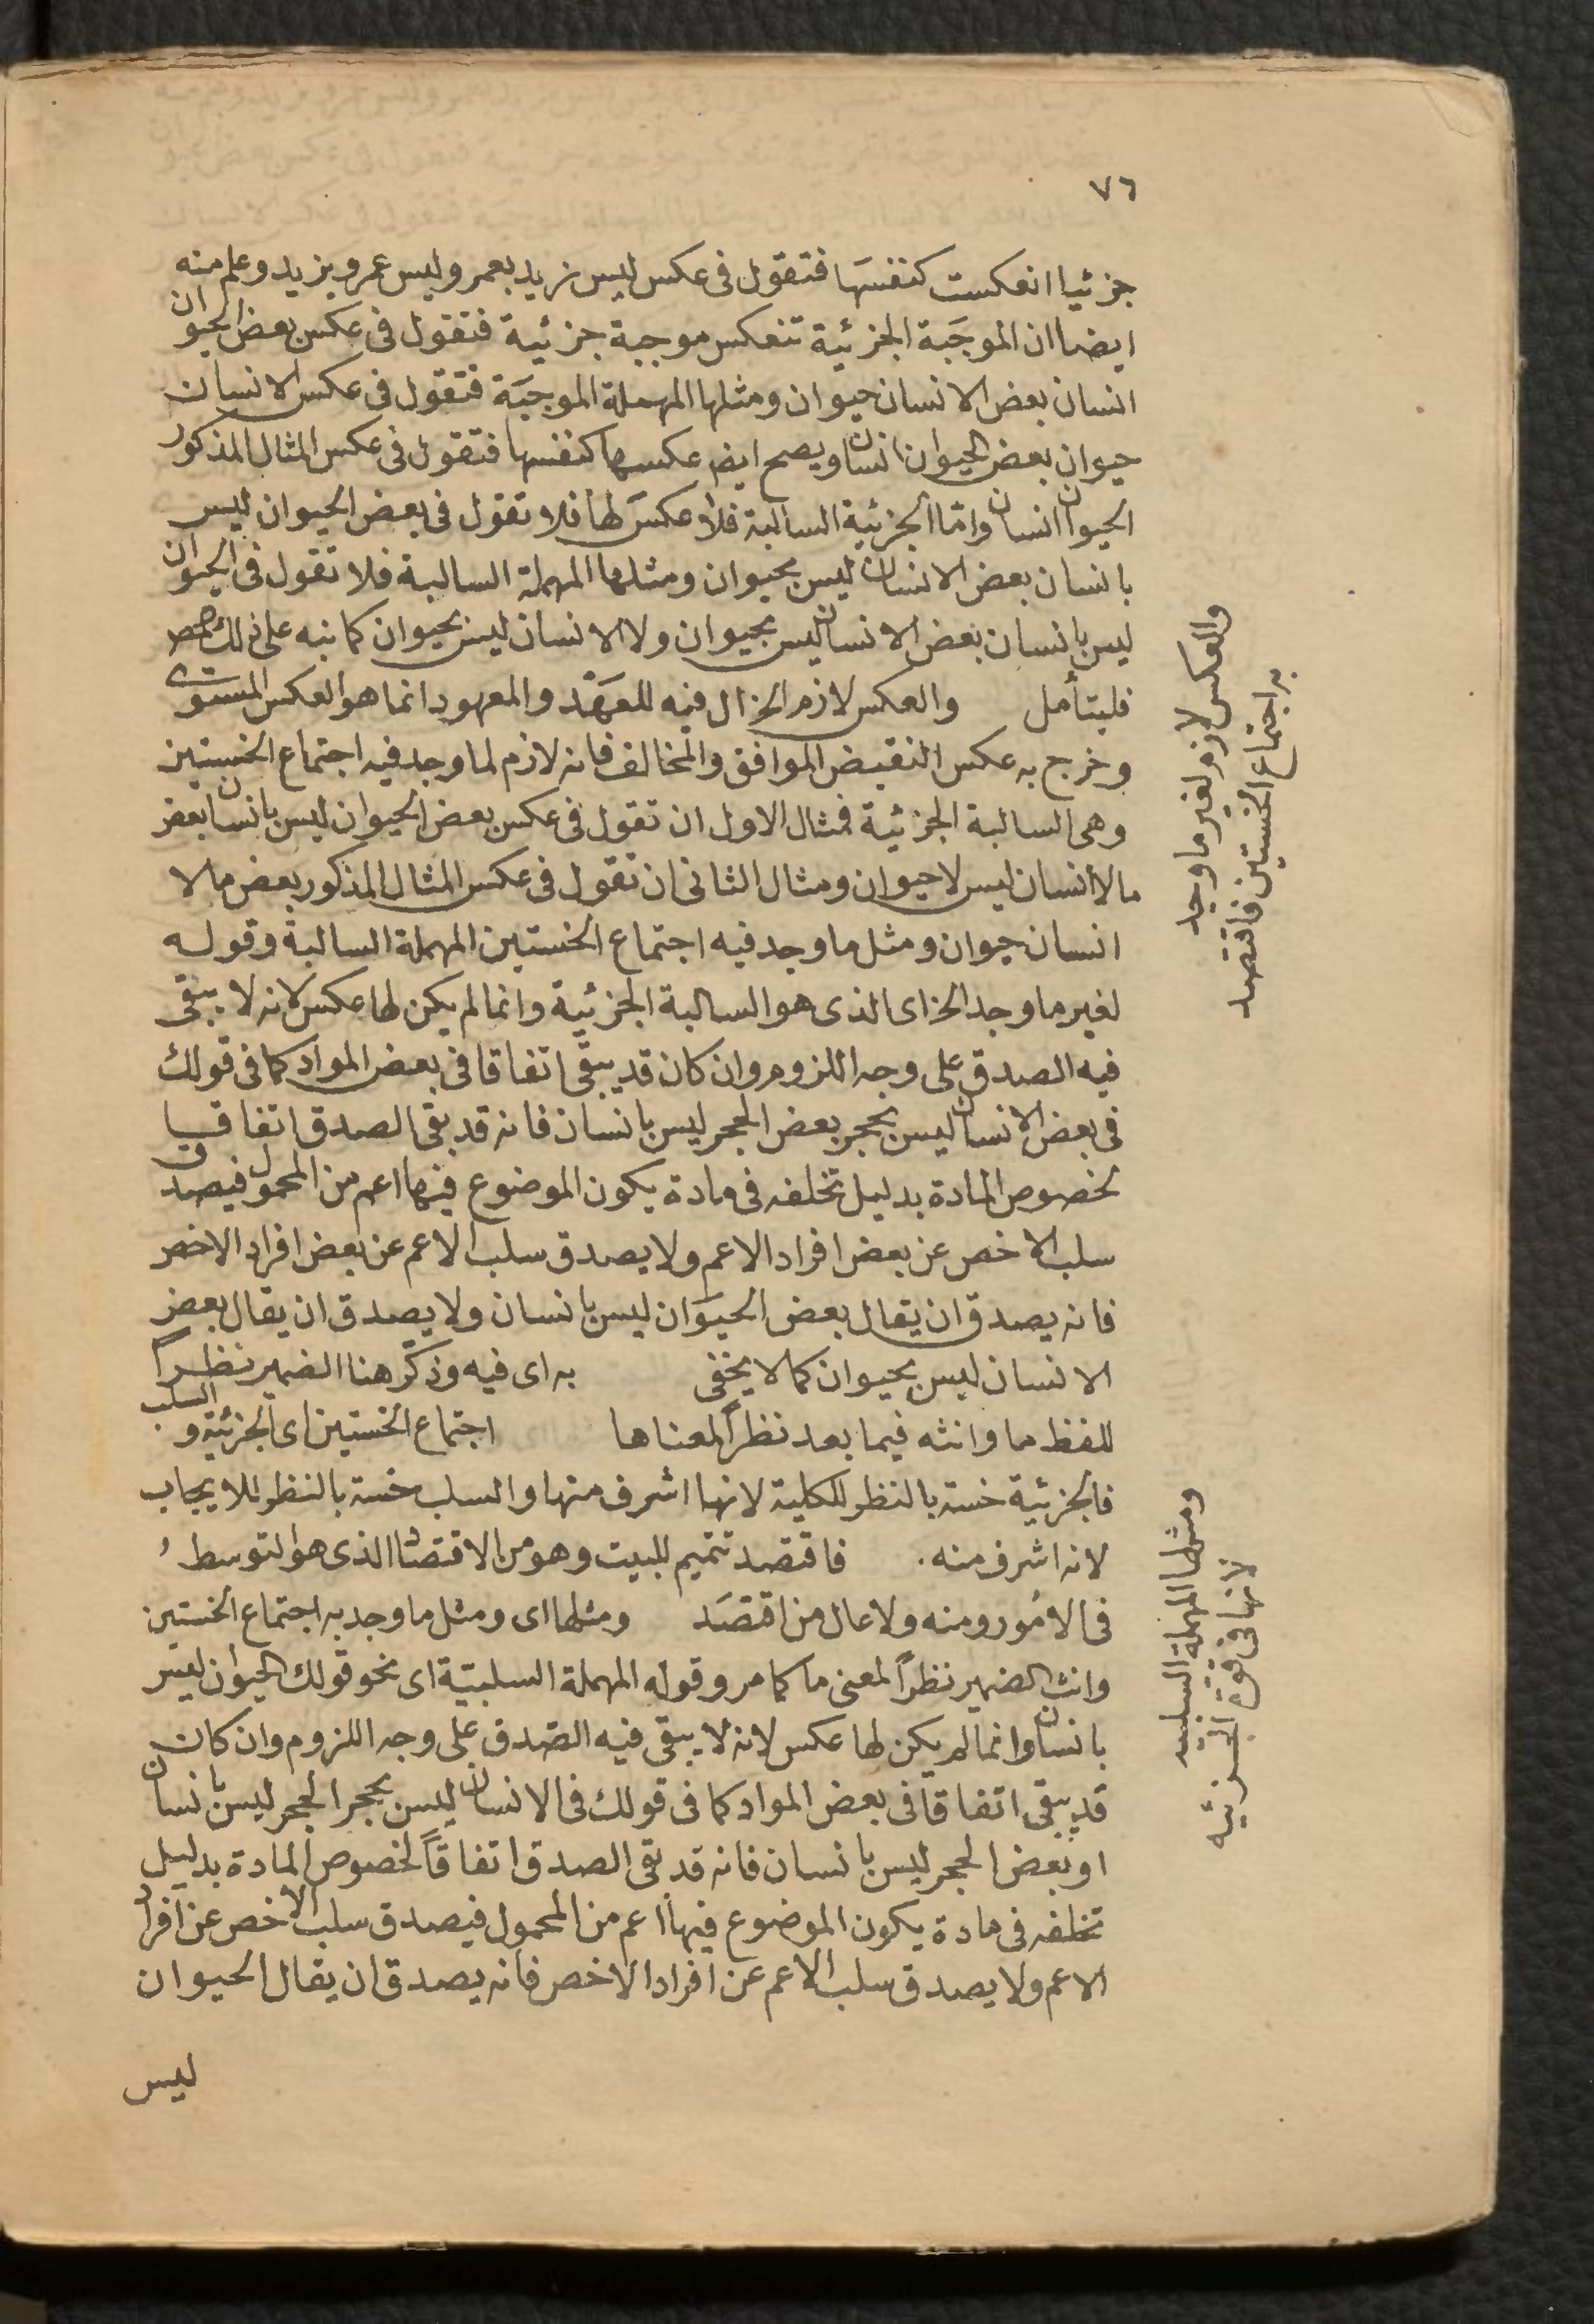 ٧٦
جزئيا انعكست كنفسها فتقول فى عكس ليس زيد بعمر وليس عمرو بزيد وعلم منه
ايضا ان الموجَبة الجزئية تنعكس موجبة جزئية فتقول فى عكس بعض الحيوان
انسان بعض الانسان حيوان ومثلها المهملة الموجَبة فتقول فى عكس الانسان
حيوان بعض الحيوان انسان ويصح ايضا عكسها كنفسها فتقول فى عكس المثال المذكور
الحيوان انسان وامّا الجزئية السالبة فلا عكسَ لها فلا تقول فى بعض الحيوان ليس
بانسان بعض الانسان ليس بحيوان ومثلها المهملة السالبة فلا تقول فى الحيوان
ليس بانسان بعض الانسان ليس بحيوان ولا الانسان ليس بحيوان كما نبه على ذلك المص
فليتأمل والعكس لازم الخ ال فيه للعَهْد والمعهود انما هو العكس المستوى
وخرج به عكس النقيض الموافق والمخالف فانه لازم لما وجد فيه اجتماع الخستين
وهى السالبة الجزئية فمثال الاول ان تقول فى عكس بعض الحيوان ليس بانسان بعض
ما لا انسان ليس لا حيوان ومثال الثانى ان تقول فى عكس المثال المذكور بعض ما لا
انسان حيوان ومثل ما وجد فيه اجتماع الخستين المهملة السالبة وقوله
لغير ما وجد الخ اى الذى هو السالبة الجزئية وانما لم يكن لها عكس لانه لا يبقى
فيه الصدق على وجه اللزوم وان كان قد يبقى اتفاقا فى بعض المواد كما فى قولك
فى بعض الانسان ليس بحجر بعض الحجر ليس بانسان فانه قد بقى الصدق اتفاقا
لخصوص المادة بدليل تخلفه فى مادة يكون الموضوع فيها اعم من المحمول فيصدق
سلب الاخص عن بعض افراد الاعم ولا يصدق سلب الاعم عن بعض افراد الاخص
فانه يصدق ان يقال بعض الحيوَان ليس بانسان ولا يصدق ان يقال بعض
الانسان ليس بحيوان كما لا يخفى به اى فيه وذكّر هنا الضمير نظراً
للفظ ما وانثه فيما بعد نظراً لمعناها اجتماع الخستين اى الجزئية والسلب
فالجزئية خسة بالنظر للكلية لانها اشرف منها والسلب خسة بالنظر للايجاب
لانه اشرف منه. فاقتصد تتميم للبيت وهو من الاقتصاد الذى هو التوسط
فى الامُور ومنه ولا عال من اقتصَد ومثلها اى ومثل ما وجد به اجتماع الخستين
وانث الضمير نظراً لمعنى ما كما مر وقوله المهملة السلبيّة اى نحو قولك الحيوان ليس
بانسان وانما لم يكن لها عكس لانه لا يبقى فيه الصّدق على وجه اللزوم وان كان
قد يبقى اتفاقا فى بعض المواد كما فى قولك فى الانسان ليس بحجر الحجر ليس بانسان
او بعض الحجر ليس بانسان فانه قد بقى الصدق اتفاقاً لخصوص المادة بدليل
تخلفه فى مادة يكون الموضوع فيها اعم من المحمول فيصدق سلب الاخص عن افراد
الاعم ولا يصدق سلب الاعم عن افراد الاخص فانه يصدق ان يقال الحيوان
ليس
والعكس لازم لغير ما وجد
به اجتماع الخستين فاقتصد
ومثلها المهملة السلبيه
لانها فى قوة الجزئيه